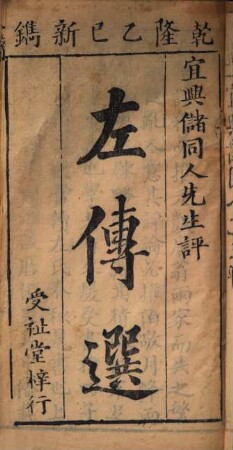 乾隆乙巳新鐫
宜興儲同人先生評
左傳選
受祉堂梓行